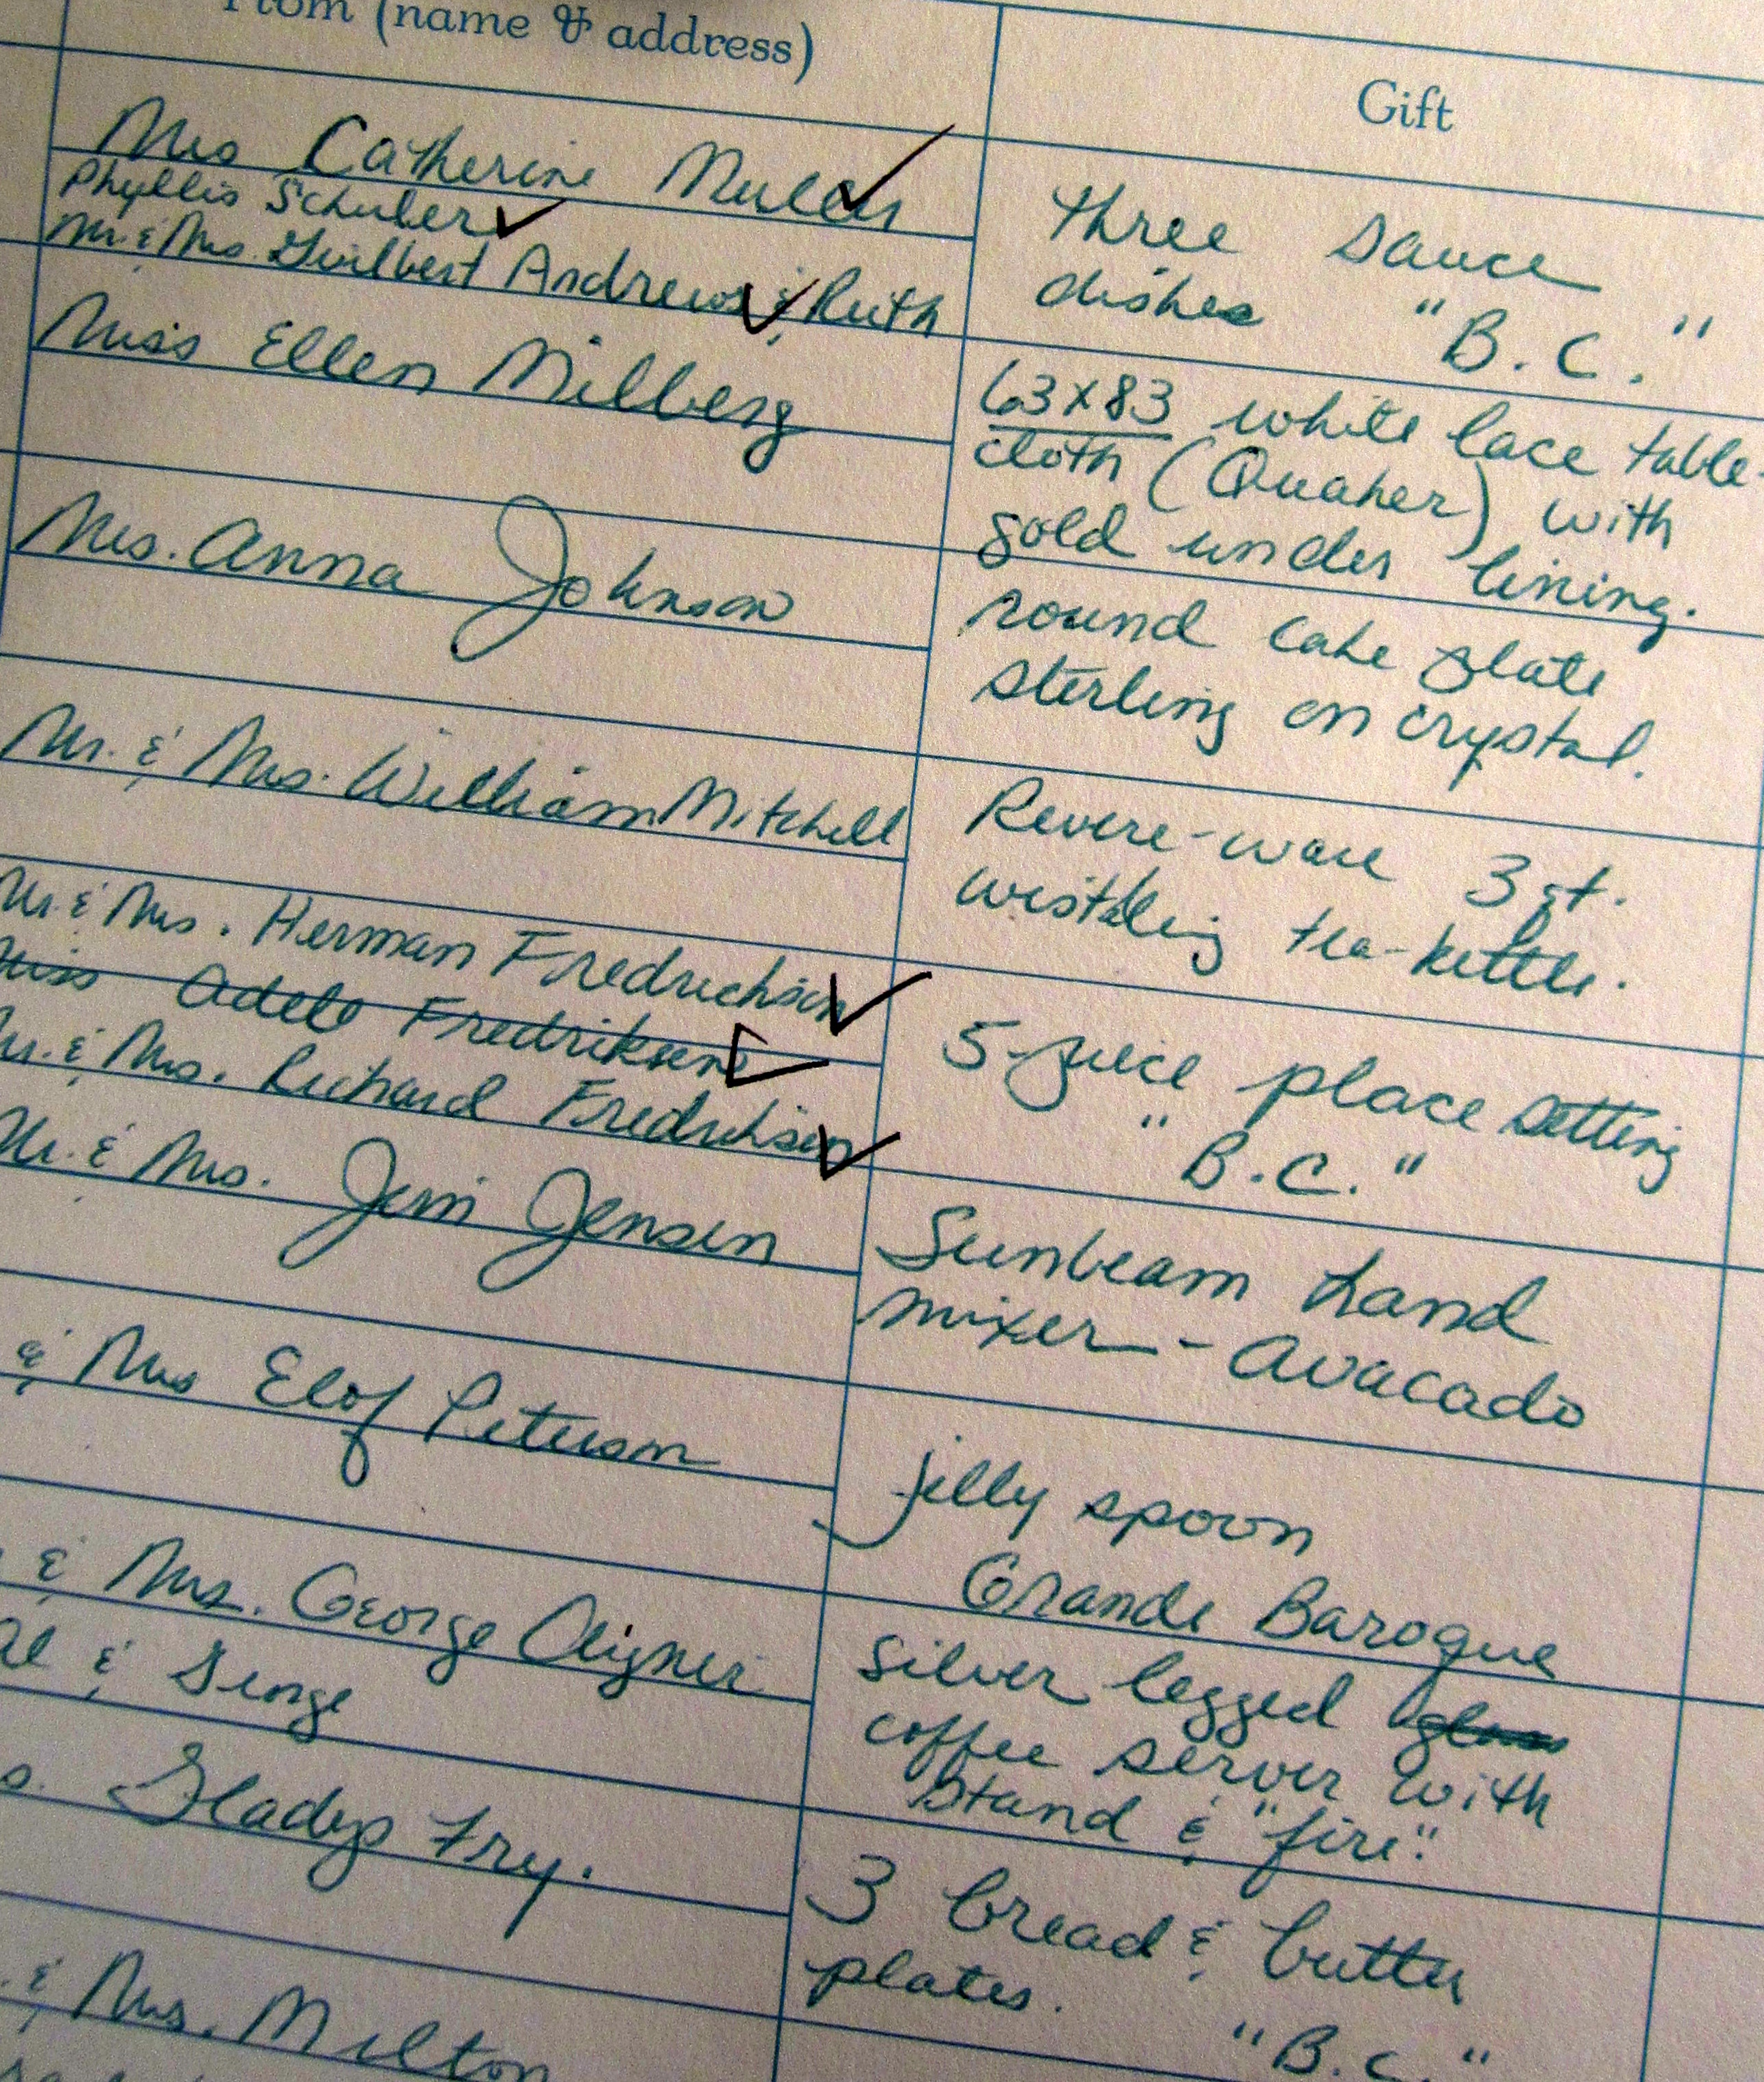 From (name & address)
Gift
Mrs Catherine Mullen
Phyllis Schuler
Mr. & Mrs. Guilbert Andrews & Ruth
three sauce
dishes "B.C."
Miss Ellen Milberg
63x83 white lace table
cloth (Quaker) with
gold under lining.
Mrs. Anna Johnson
round cake plate
sterling on crystal.
Mr. & Mrs. William Mitchell
Revere-ware 3 qt.
wistling tea-kettle.
Mr. & Mrs. Herman Fredrickson
Miss Adele Fredriksen
Mr. & Mrs. Richard Fredrickson
5-piece place setting
"B.C."
Mr. & Mrs. Jim Jensen
Sunbeam hand
mixer - Avacado
& Mrs Elof Peterson
jelly spoon
Grande Baroque
& Mrs. George Aligner
Al & George
silver legged glass
coffee server with
stand & "fire".
s. Gladys Fry.
3 bread & butter
plates.
"B.C."
. & Mrs. Milton